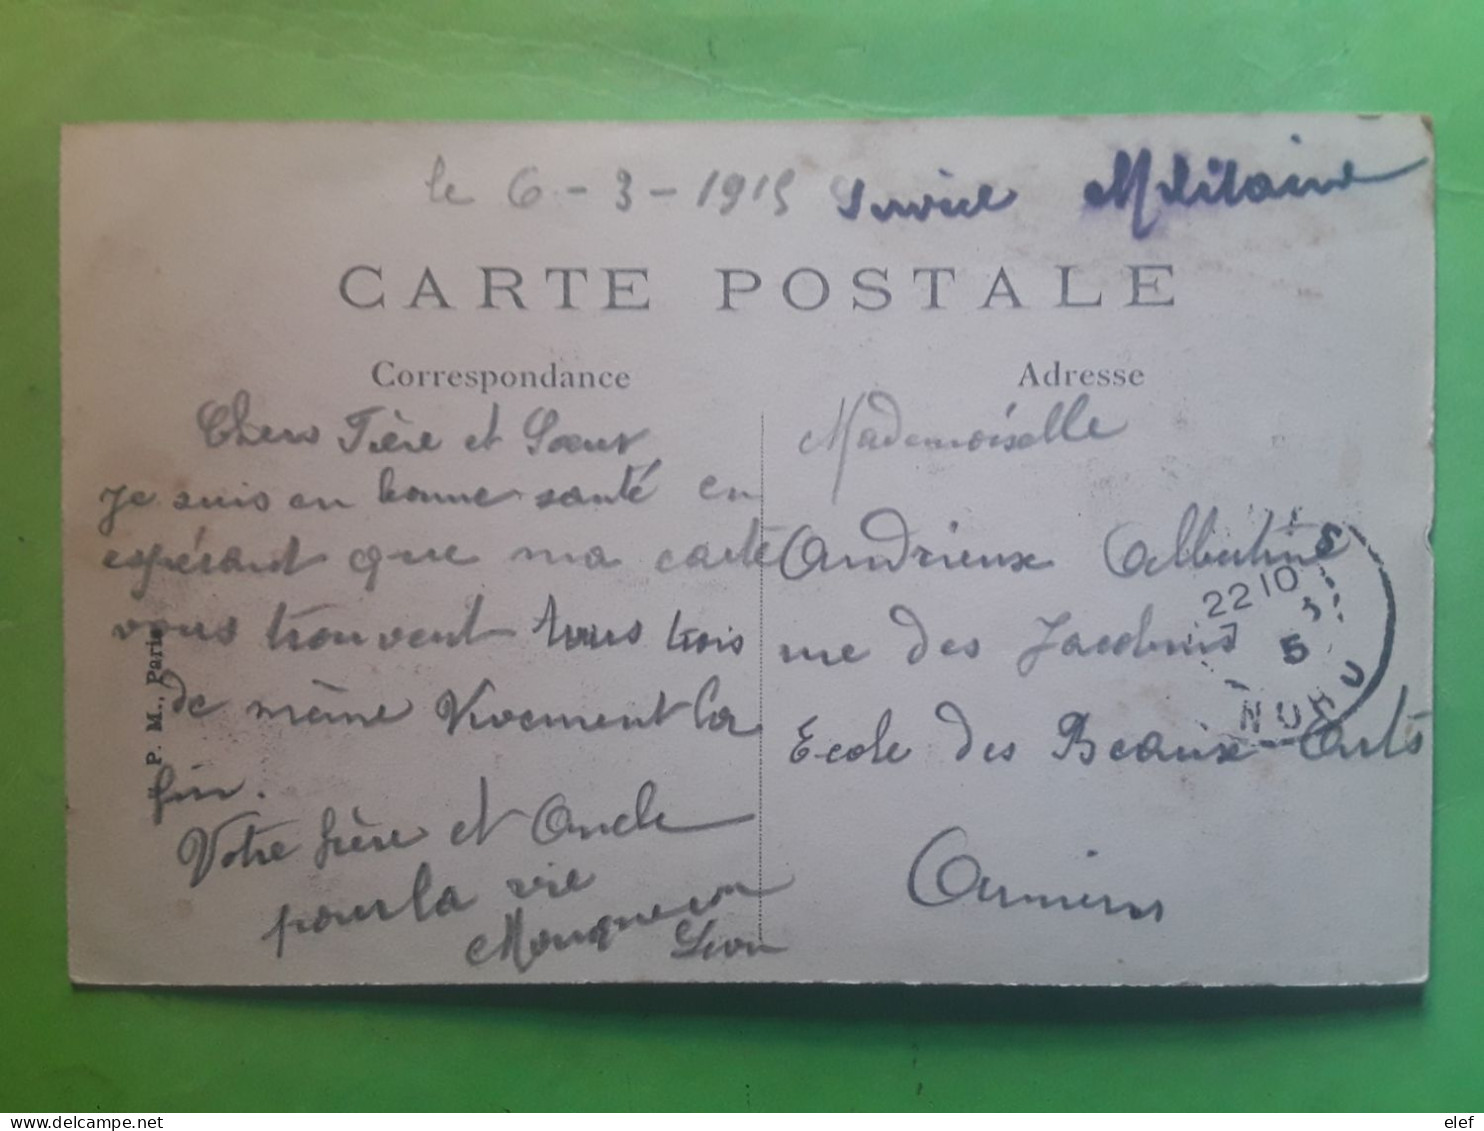 le 6-3-1915 Service Militaire
CARTE POSTALE
Correspondance
Chers Frère et Soeur
Je suis en bonne santé en
espérant que ma carte
vous trouvent tous trois
de même Vivement la
fin.
Votre frère et Oncle
pour la vie
Mouqueron
Léon
P. M., Paris
Adresse
Mademoiselle
Andrieux Albertine
rue des Jacobins
Ecole des Beaux Arts
Amiens
22 10
5
NORD
elef